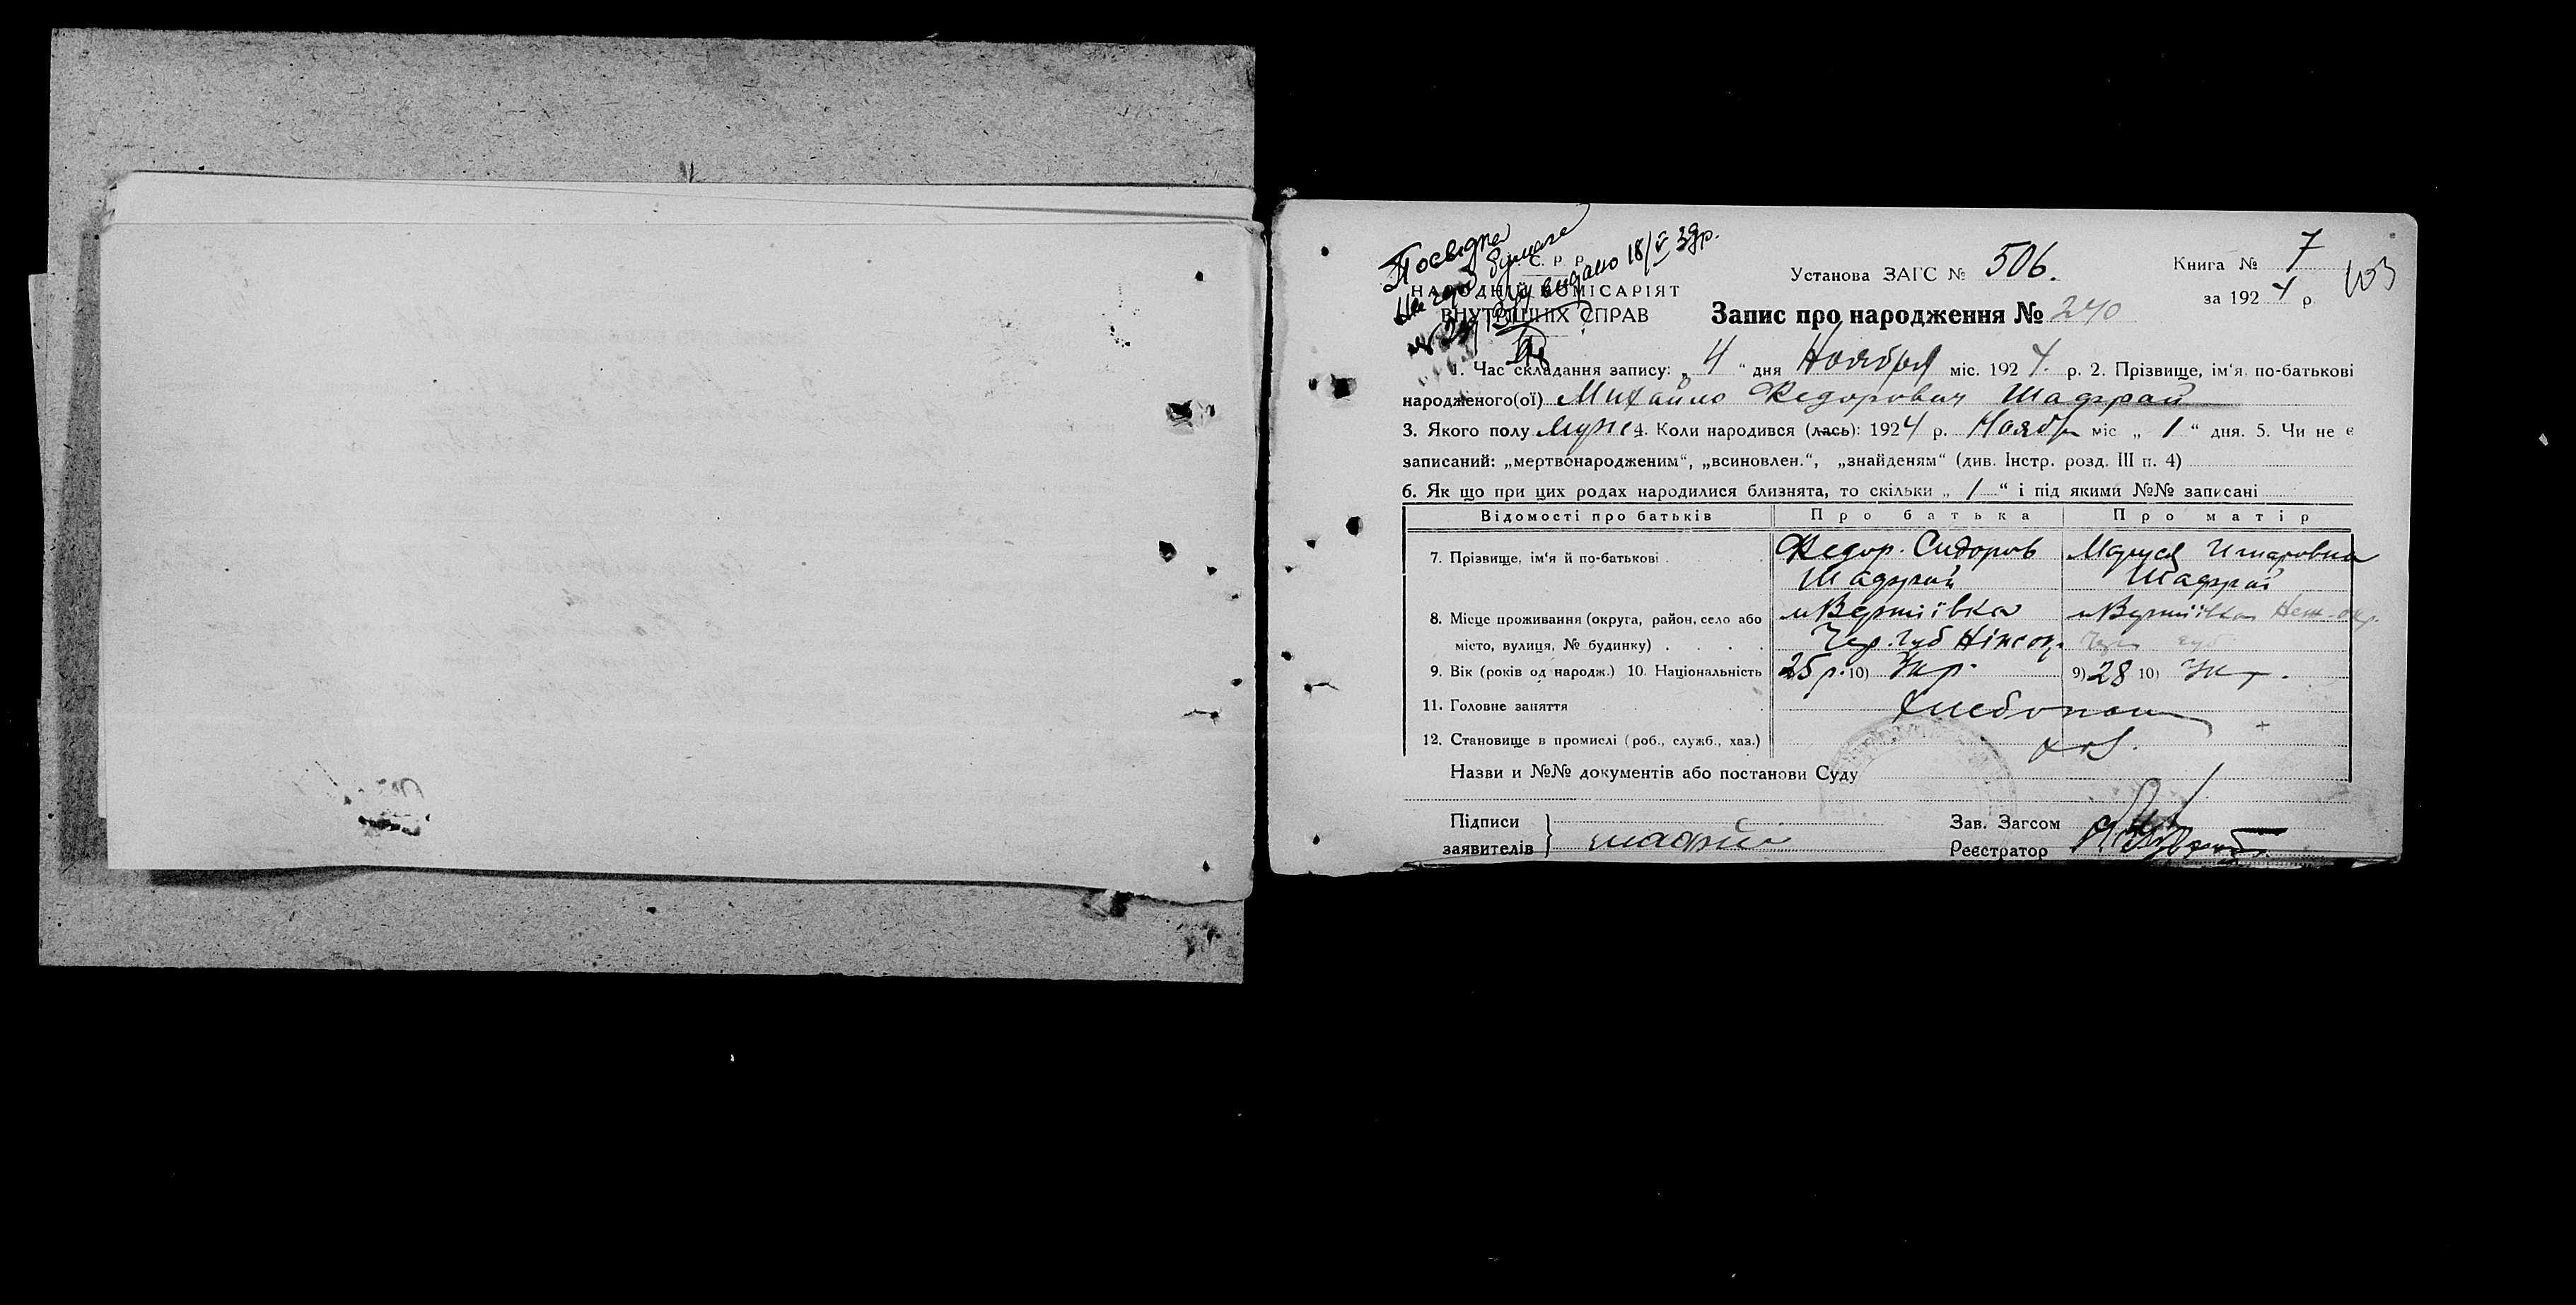 Посвідка
С. Р. Р.
видано 18/V 39р.
НАРОДНІЙ КОМІСАРІЯТ
ВНУТРІШНІХ СПРАВ
Установа ЗАГС № 506.
Книга № 7
за 1924 р.
103
Запис про народження № 240
1. Час складання запису: „ 4 “ дня Ноября міс. 1924. р. 2. Прізвище, ім‘я по-батькові
народженого(ої) Михайло Федорович Шафрай
3. Якого полу муж 4. Коли народився (лась): 1924 р. Ноябр міс „ 1 “ дня. 5. Чи не є
записаний: „мертвонародженим“, „всиновлен.“, „знайденям“ (див. Інстр. розд. III п. 4)
6. Як що при цих родах народилися близнята, то скільки „ 1 “ і під якими №№ записані
Відомості про батьків Про батька Про матір
7. Прізвище, ім‘я й по-батькові Федор. Сидоров Маруся
Шафрай Шафрай
8. Місце проживання (округа, район, село або м Вертіївка м Вертіївка Неж-окр.
місто, вулиця, № будинку) Чер. губ Ніж ок. Чер губ
9. Вік (років од народж.) 10. Національність 25 р. 10) Укр. 9) 28 10) Ук.
11. Головне заняття Хлебопаш
12. Становище в промислі (роб., служб., хаз.) хаз.
Назви и №№ документів або постанови Суду
Підписи
заявителів Шафрай
Зав. Загсом
Реєстратор